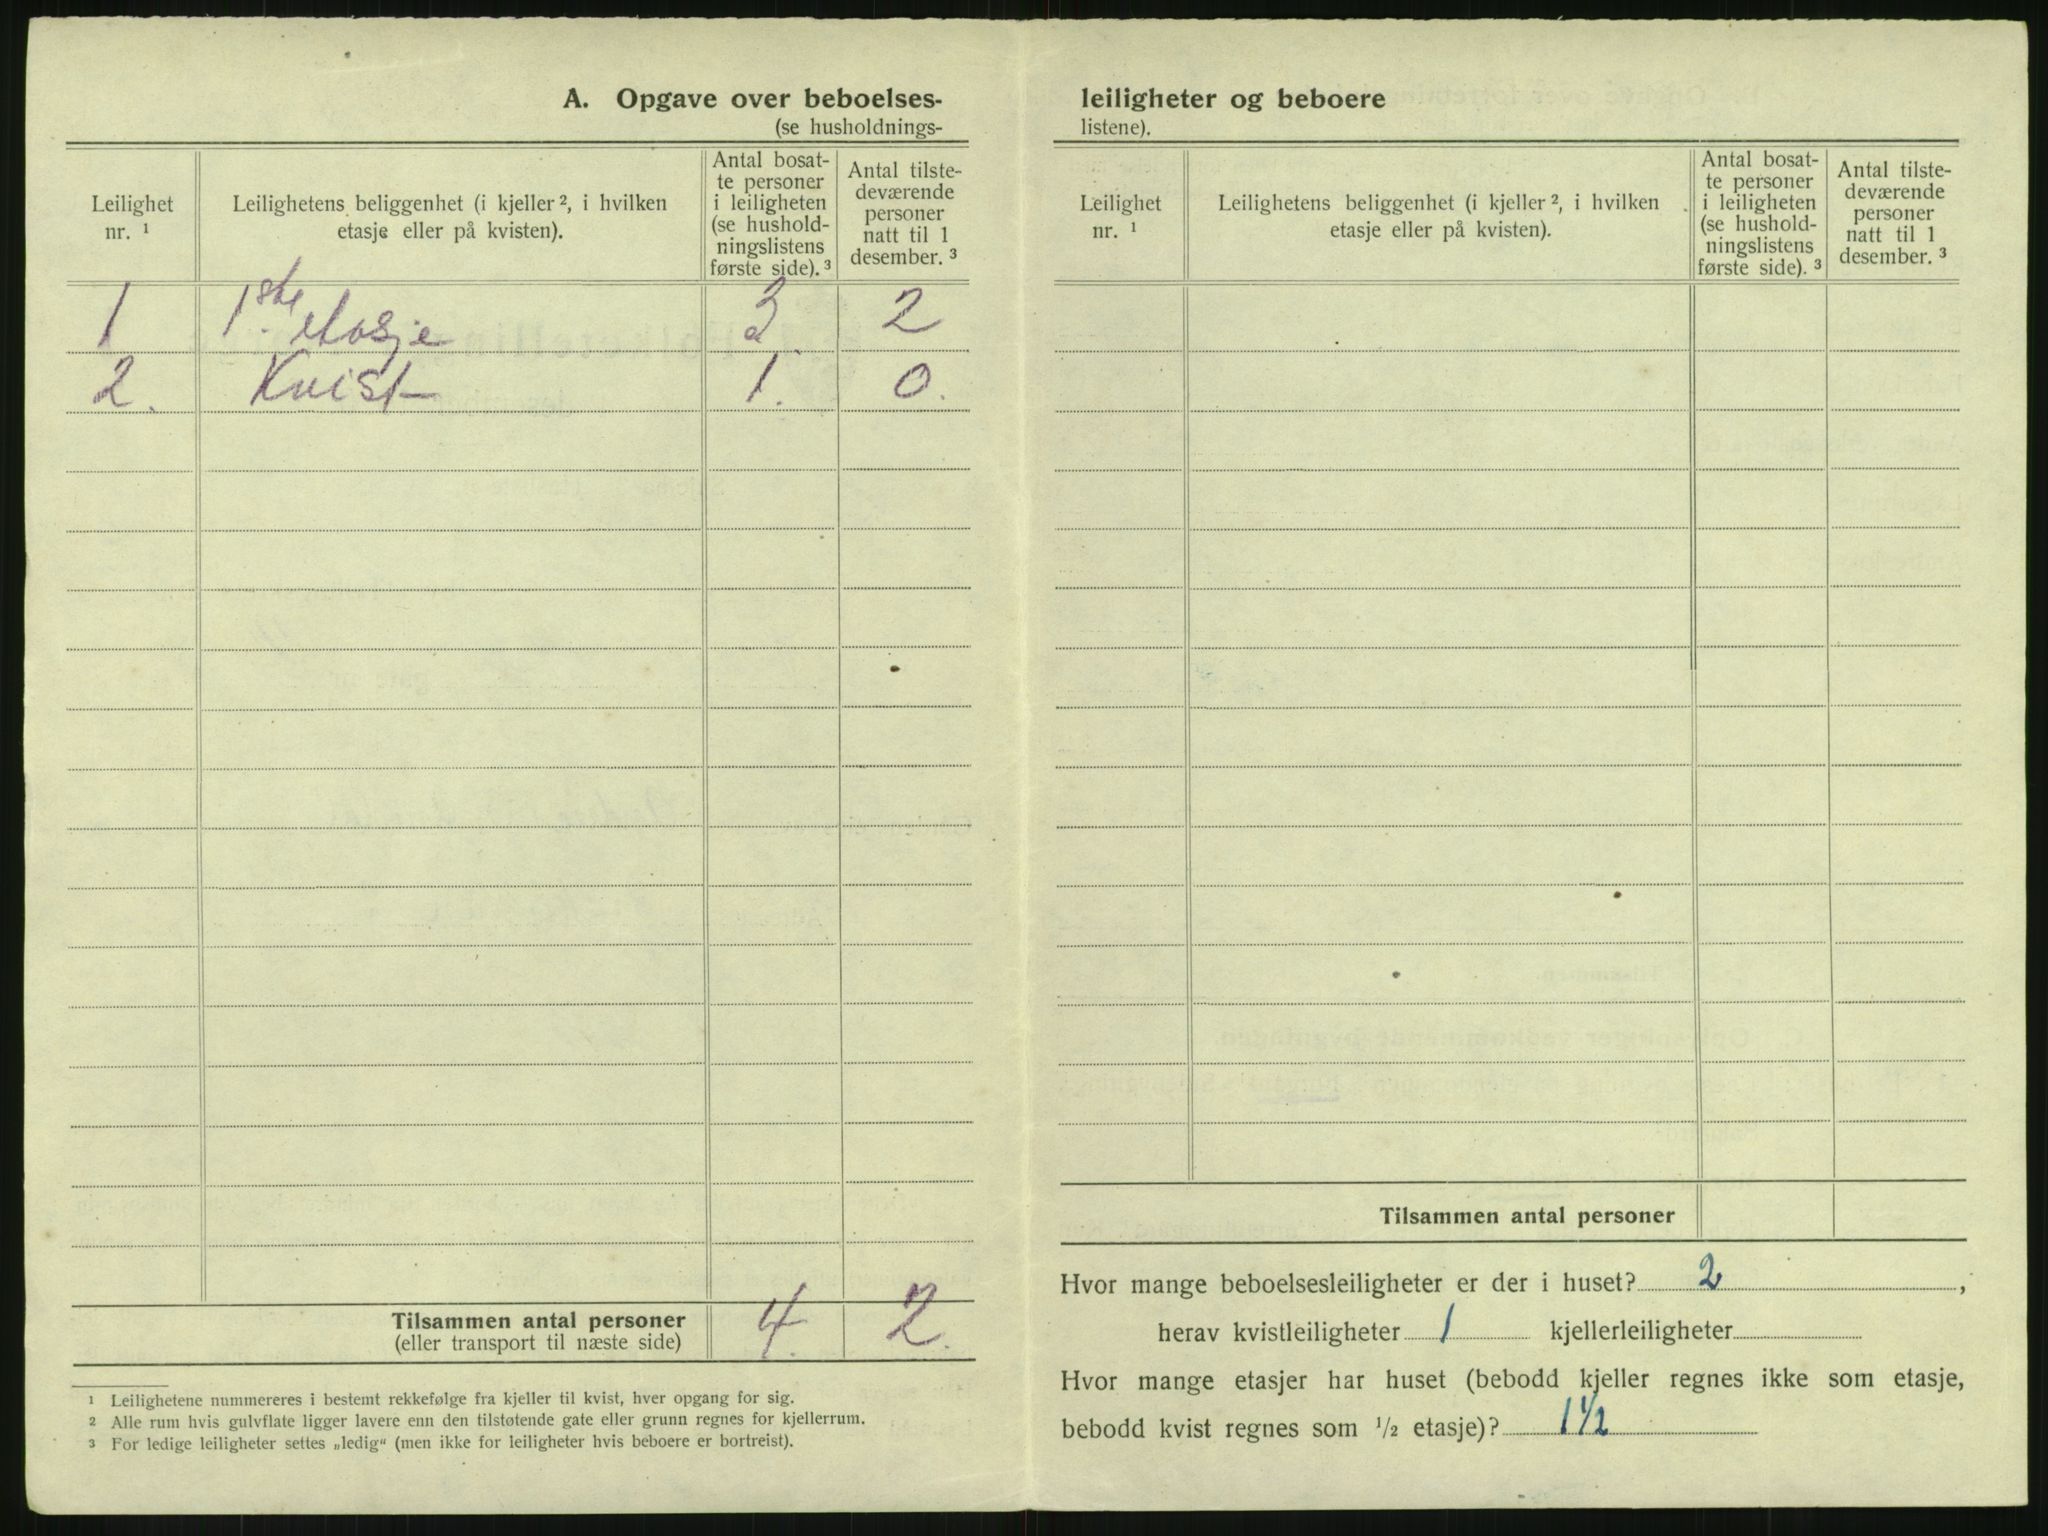 A. Opgave over beboelses-
(se husholdnings-
Leilighet nr. ¹
Leilighetens beliggenhet (i kjeller ², i hvilken
etasje eller på kvisten).
Antal bosat-
te personer
i leiligheten
(se hushold-
ningslistens
første side). ³
Antal tilste-
deværende
personer
natt til 1
desember. ³
1 1ste etasje 3 2
2. Kvist 1. 0.
Tilsammen antal personer 4. 2.
(eller transport til næste side)
¹ Leilighetene nummereres i bestemt rekkefølge fra kjeller til kvist, hver opgang for sig.
² Alle rum hvis gulvflate ligger lavere enn den tilstøtende gate eller grunn regnes for kjellerrum.
³ For ledige leiligheter settes „ledig“ (men ikke for leiligheter hvis beboere er bortreist).
leiligheter og beboere
listene).
Leilighet nr. ¹
Leilighetens beliggenhet (i kjeller ², i hvilken
etasje eller på kvisten).
Antal bosat-
te personer
i leiligheten
(se hushold-
ningslistens
første side). ³
Antal tilste-
deværende
personer
natt til 1
desember. ³
Tilsammen antal personer
Hvor mange beboelsesleiligheter er der i huset? 2 ,
herav kvistleiligheter 1 kjellerleiligheter
Hvor mange etasjer har huset (bebodd kjeller regnes ikke som etasje,
bebodd kvist regnes som ½ etasje)? 1½